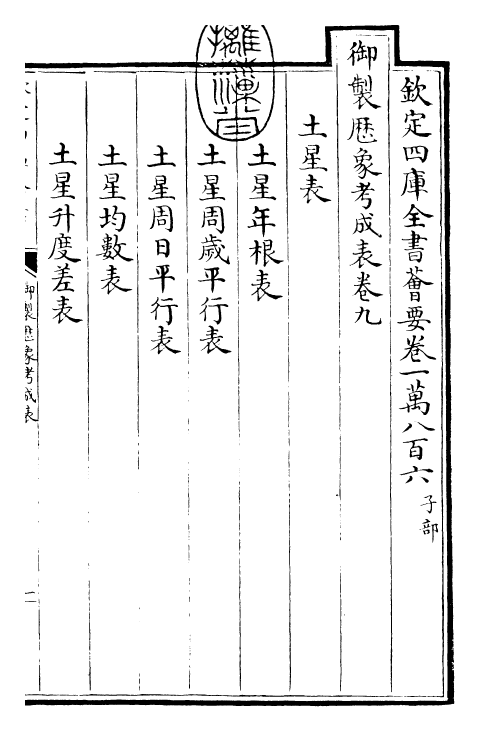 欽定四庫全書薈要卷一萬八百六 子部
御製厯象考成表卷九
土星表
土星年根表
土星周歲平行表
土星周日平行表
土星均數表
土星升度差表
御製厯象考成表